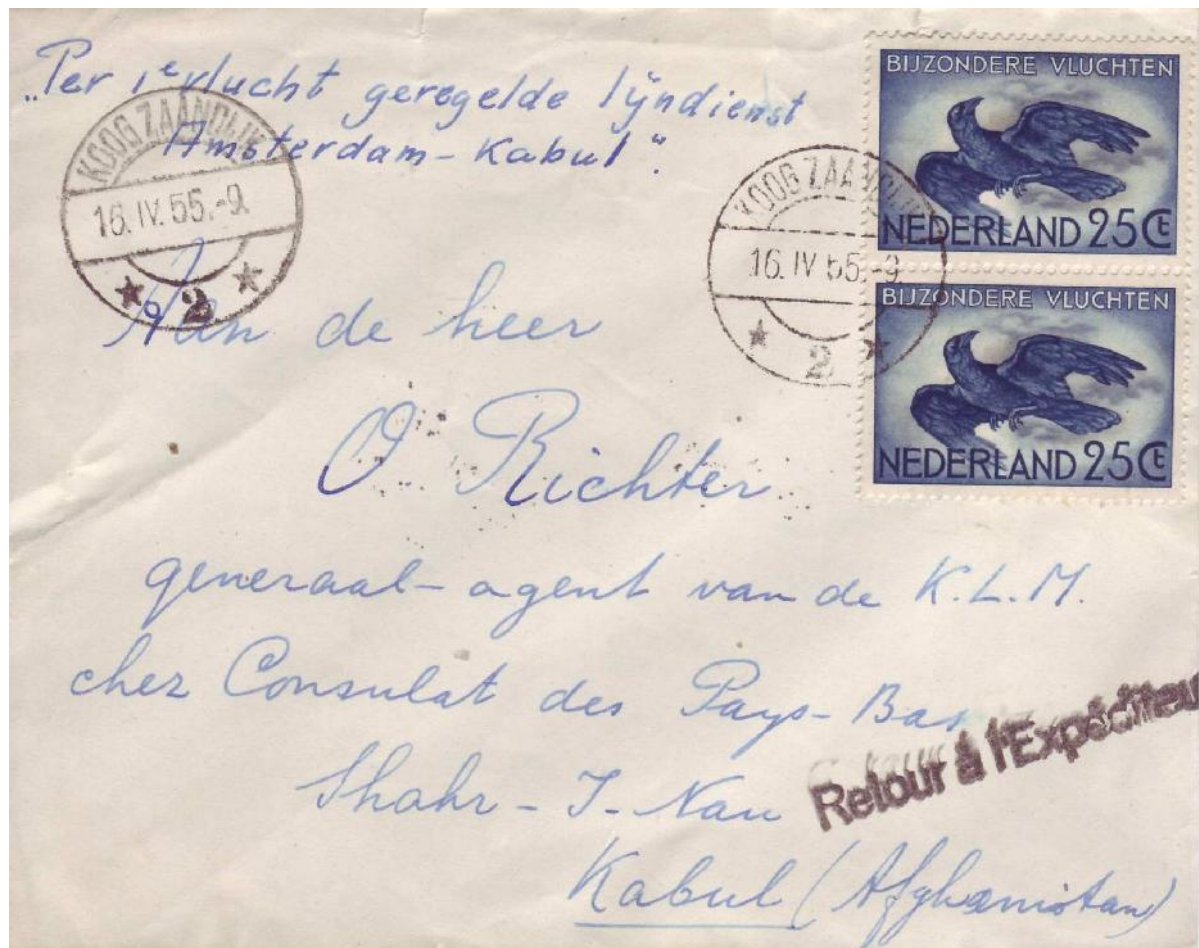 „Per 1e vlucht geregelde lijndienst
Amsterdam-Kabul".
KOOG ZAANDIJK
16.IV.55.-9.
2
KOOG ZAANDIJK
16.IV.55.-9.
2
BIJZONDERE VLUCHTEN
NEDERLAND 25 Ct
BIJZONDERE VLUCHTEN
NEDERLAND 25 Ct
Aan de heer
O Richter
generaal-agent van de K.L.M.
chez Consulat des Pays-Bas
Shahr-I-Nau
Retour à l'Expéditeur
Kabul (Afghanistan)